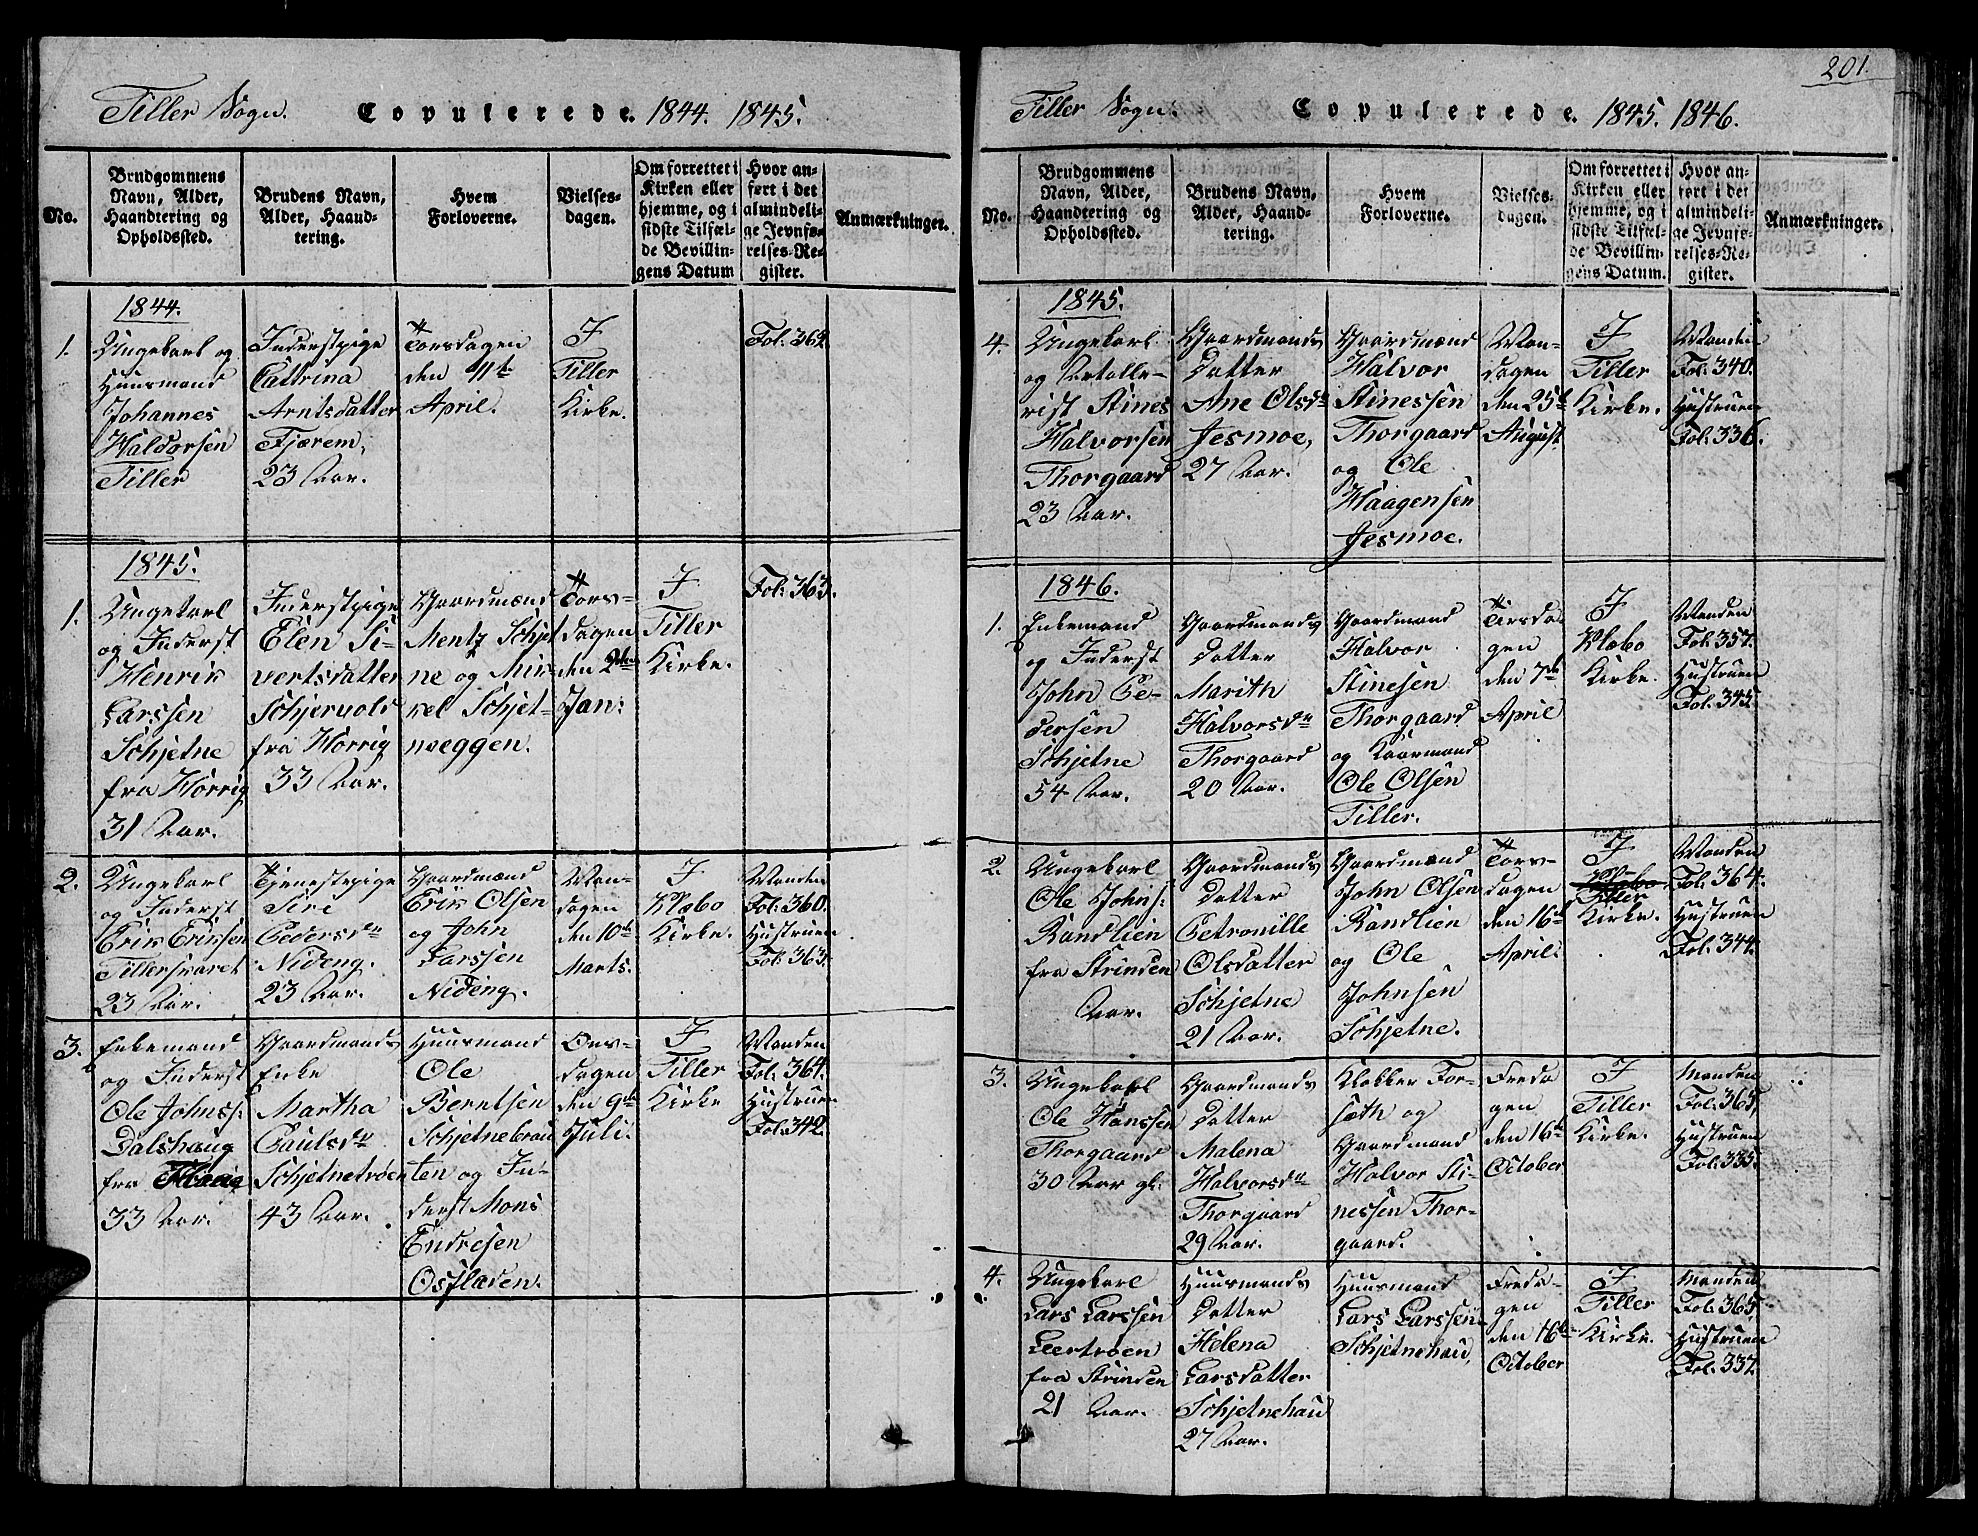 Tiller Sogn. Copulerede. 1844. 1845.
No.
Brudgommens Navn, Alder, Haandtering og Opholdssted.
Brudens Navn, Alder, Haandtering.
Hvem Forloverne.
Vielsesdagen.
Om forrettet i Kirken eller hjemme, og i sidste Tilfælde Bevillingens Datum
Hvor anført i det almindelige Jevnførelses-Register.
Anmærkninger.
1844.
1.
Ungekarl og
Huusmand
Johannes
Haldorsen
Tiller
Inderstpige
Cathrina
Arntsdatter
Fjærem,
23 Aar.
Torsdagen
den 11te
April.
I
Tiller
Kirke.
Fol: 364.
1845.
1.
Ungekarl
og Inderst
Henrik
Larssen
Schjetne
fra Horrig
31 Aar.
Inderstpige
Elen Si-
vertsdatter
Schjervols
fra Horrig
33 Aar.
Gaardmænd
Mentz Schjet
ne og Mik-
kel Schjet-
nveggen.
Tors-
dagen
den 2den
Jan:
I
Tiller
Kirke.
Fol: 363.
2.
Ungekarl
og Inderst
Erik Eriksen
Tillersvaret
23 Aar.
Tjenestepige
Siri
Pedersdr
Nideng.
23 Aar.
Gaardmænd
Erik Olsen
og John
Larssen
Nideng.
Man-
dagen
den 10de
Marts.
I
Klæbo
Kirke.
Manden
Fol: 360.
Hustruen
Fol: 363.
3.
Enkemand
og Inderst
Ole Johns:
Dalshaug
fra
33 Aar.
Gaardmands
Enke
Martha
Paulsdr
Schjetnetrøen
43 Aar.
Huusmand
Ole
Berntsen
Schjetnebrau
ten og In-
derst Mons
Endresen
Ostladen.
Ons-
dagen
den 9de
Juli.
I
Tiller
Kirke
Manden
Fol: 364.
Hustruen
Fol: 342.
201.
Tiller Sogn. Copulerede. 1845. 1846.
No.
Brudgommens Navn, Alder, Haandtering og Opholdssted.
Brudens Navn, Alder, Haandtering.
Hvem Forloverne.
Vielsesdagen.
Om forrettet i Kirken eller hjemme, og i sidste Tilfælde Bevillingens Datum.
Hvor anført i det almindelige Jevnførelses-Register.
Anmærkninger.
1845.
4.
Ungekarl
og Artolle-
rist Stines
Halvorsen
Thorgaard
23 Aar.
Gaardmands
Datter
Ane Olsdr
Jesmoe,
27 Aar.
Gaardmænd
Halvor
Stinessen
Thorgaard
og Ole
Haagensen
Jesmoe.
Man-
dagen
den 25de
August.
I
Tiller
Kirke.
Manden
Fol: 340.
Hustruen
Fol: 336.
1846.
1.
Enkemand
og Inderst
John Pe-
dersen
Schjetne
54 Aar.
Gaardmands
Datter
Marith
Halvorsdr
Thorgaard
20 Aar.
Gaardmand
Halvor
Stinesen
Thorgaard
og Kaarmand
Ole Olsen
Tiller.
Tirsda
gen
den 7de
April
I
Klæbo
Kirke.
Manden
Fol: 357.
Hustruen
Fol: 345.
2.
Ungekarl
Ole Johns:
Randlien
fra Strinden
Aar.
Gaardmands
Datter
Petronille
Olsdatter
Schjetne
21 Aar.
Gaardmand
John Olsen
Randlien
og Ole
Johnsen
Schjetne.
Tors-
dagen
den 16de
April.
I
Klæbo
Tiller
Kirke.
Manden
Fol: 364.
Hustruen
Fol: 344.
3.
Ungekarl
Ole Hanssen
Thorgaard
30 Aar gl.
Gaardmands
Datter
Malena
Halvorsdr
Thorgaard
29 Aar.
Klokker For-
sæth og
Gaardmand
Halvor Sti-
nessen Thor-
gaard.
Freda
gen
den 16de
October
I
Tiller
Kirke.
Manden
Fol: 365,
Hustruen
Fol: 335.
4.
Ungekarl
Lars Larssen
Leertrøen
fra Strinden
21 Aar.
Huusmands
Datter
Helena
Larsdatter
Schjetnehau
27 Aar.
Huusmand
Lars Larssen
Schjetnehau,
Freda-
gen
den 16de
October
I
Tiller
Kirke.
Manden
Fol: 365,
Hustruen
Fol: 337.